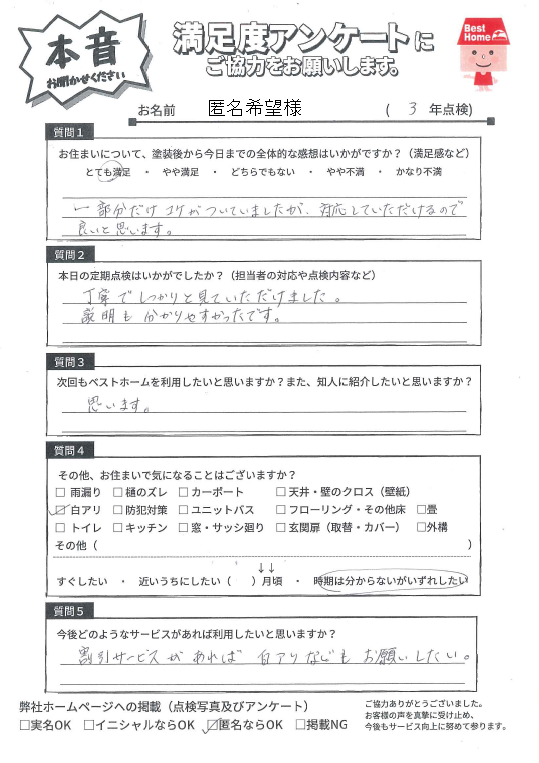 本音
お聞かせください
満足度アンケートに
ご協力をお願いします。
Best
Home
お名前 匿名希望様 ( 3 年点検)
質問1
お住まいについて、塗装後から今日までの全体的な感想はいかがですか？（満足感など）
とても満足 ・ やや満足 ・ どちらでもない ・ やや不満 ・ かなり不満
一部分だけコケがついていましたが、対応していただけるので
良いと思います。
質問2
本日の定期点検はいかがでしたか？（担当者の対応や点検内容など）
丁寧でしっかりと見ていただけました。
説明も分かりやすかったです。
質問3
次回もベストホームを利用したいと思いますか？また、知人に紹介したいと思いますか？
思います。
質問4
その他、お住まいで気になることはございますか？
□ 雨漏り □ 樋のズレ □ カーポート □ 天井・壁のクロス（壁紙）
☑ 白アリ □ 防犯対策 □ ユニットバス □ フローリング・その他床 □畳
□ トイレ □ キッチン □ 窓・サッシ廻り □ 玄関扉（取替・カバー） □外構
その他（ ）
↓↓
すぐしたい ・ 近いうちにしたい（ ）月頃 ・ 時期は分からないがいずれしたい
質問5
今後どのようなサービスがあれば利用したいと思いますか？
割引サービスがあれば白アリなどもお願いしたい。
弊社ホームページへの掲載（点検写真及びアンケート）
□実名OK □イニシャルならOK ☑匿名ならOK □掲載NG
ご協力ありがとうございました。
お客様の声を真摯に受け止め、
今後もサービス向上に努めて参ります。